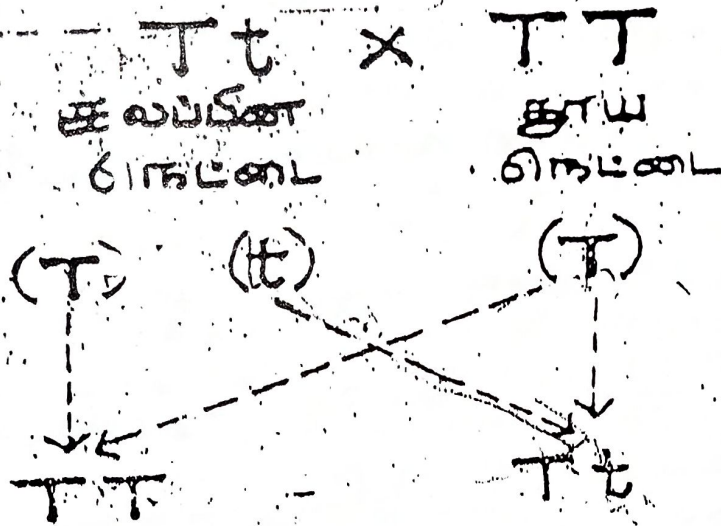 Tt × TT
கலப்பின தூய
நெட்டை நெட்டை
(T) (t) (T)
TT Tt